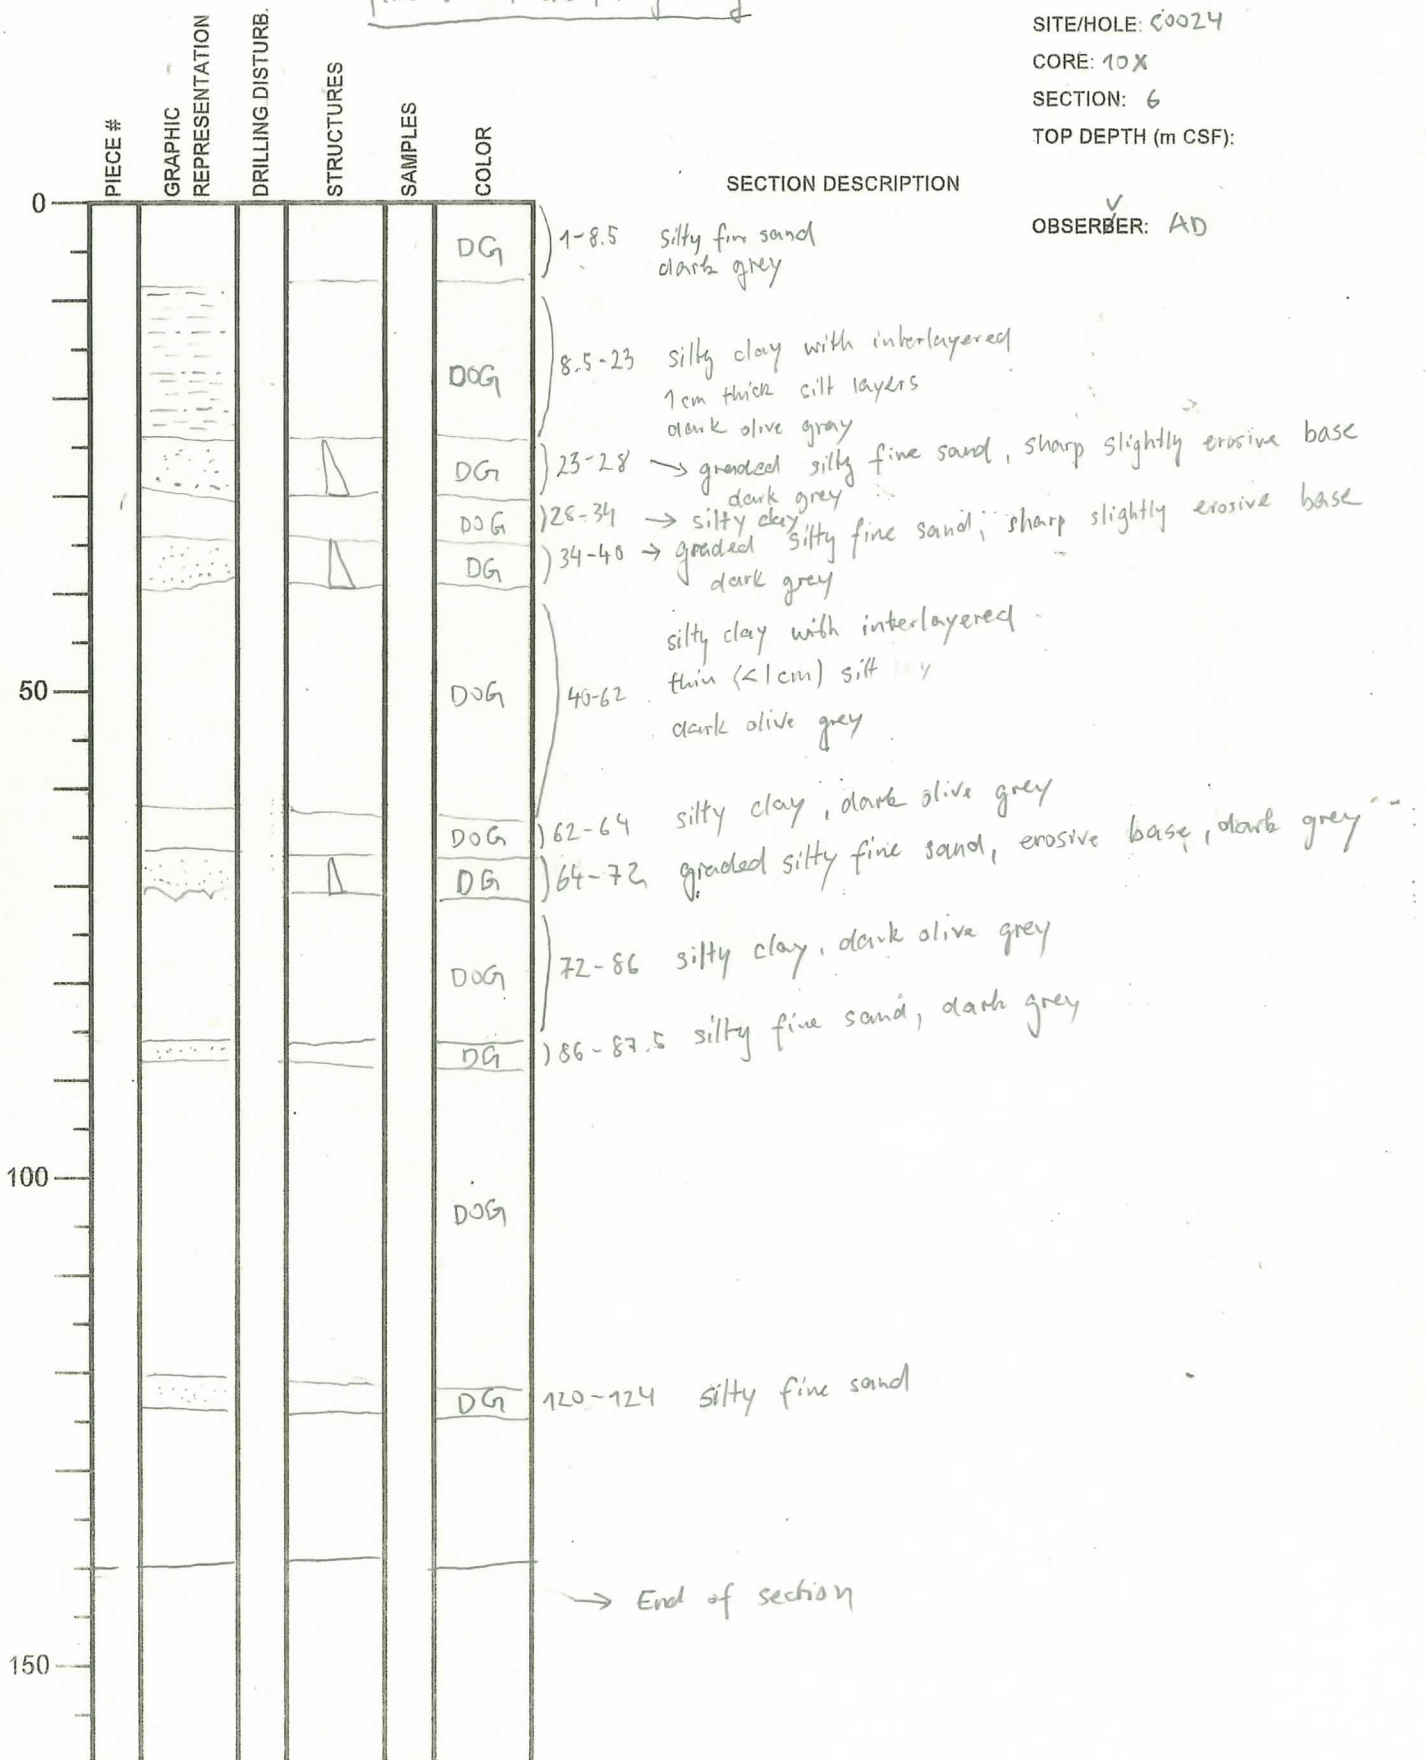 SITE/HOLE: C0024
CORE: 10X
SECTION: 6
TOP DEPTH (m CSF):
OBSERVER: AD
PIECE #
GRAPHIC
REPRESENTATION
DRILLING DISTURB.
STRUCTURES
SAMPLES
COLOR
SECTION DESCRIPTION
0
DG 1-8.5 silty fine sand
dark grey
DOG 8.5-23 silty clay with interlayered
1cm thick silt layers
dark olive gray
DG 23-28 → graded silty fine sand, sharp slightly erosive base
dark grey
DOG 28-34 → silty clay
DG 34-40 → graded silty fine sand, sharp slightly erosive base
dark grey
silty clay with interlayered
50 DOG 40-62 thin (<1cm) silt
dark olive grey
DOG 62-64 silty clay, dark olive grey
DG 64-72 graded silty fine sand, erosive base, dark grey
DOG 72-86 silty clay, dark olive grey
DG 86-87.5 silty fine sand, dark grey
100
DOG
DG 120-124 silty fine sand
→ End of section
150